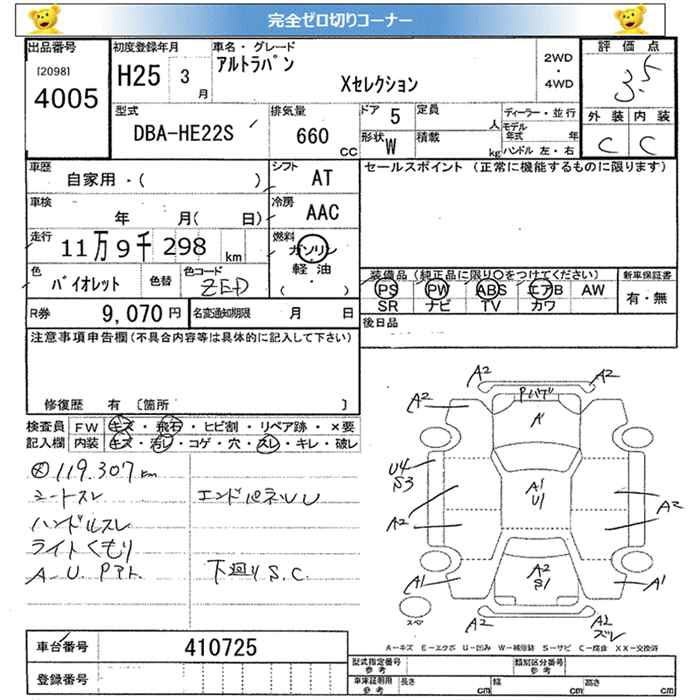 完全ゼロ切りコーナー
出品番号 初度登録年月 車名・グレード 評価点
[2098] 4005 H25 3月 アルトラパン Xセレクション 2WD・4WD 3.5
型式 排気量 ドア 5 定員 人 ディーラー・並行 外装 内装
DBA-HE22S 660 CC 形状 W 積載 kg モデル年式 年 ハンドル 左・右 C C
車歴 自家用・( ) シフト AT セールスポイント (正常に機能するものに限ります)
車検 年 月( 日) 冷房 AAC
走行 11万9千298 km 燃料 ガソリン 軽油 ・( )
色 バイオレット 色替 色コード ZED
装備品 (純正品に限り○をつけてください) 新車保証書
PS PW ABS エアB AW 有・無
SR ナビ TV カワ
R券 9,070円 名変通知期限 月 日 後日品
注意事項申告欄 (不具合内容等は具体的に記入して下さい)
修復歴 有 [箇所 ]
検査員 FW キズ・飛石・ヒビ割・リペア跡・×要
記入欄 内装 キズ・汚レ・コゲ・穴・スレ・キレ・破レ
119.307 km
シートスレ エンドパネルU
ハンドルスレ
ライトくもり
A.U. Pアト. 下廻りS.C.
A2 A2
Pハゲ
A2 A2
A1
U4
S3
A1
U1
A2 A2
A2
S1
A1 A1
スペ A2 A2
ズレ
A-キズ E-エクボ U-凹み W-補修跡 S-サビ C-腐食 XX-交換済
車台番号 410725
登録番号
型式指定番号 参考 類別区分番号 参考
車庫証明用 参考 長さ cm 幅 cm 高さ cm